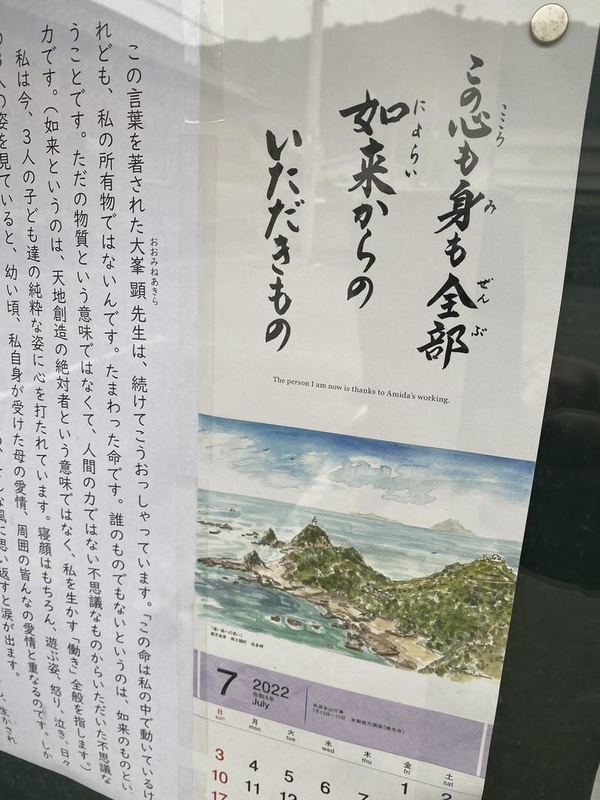 この心も身も全部
こころ
み
ぜんぶ
如来からの
にょらい
いただきもの
The person I am now is thanks to Amida's working.
この言葉を著された大峯 顕 先生は、続けてこうおっしゃっています。「この命は私の中で動いているけ
おおみねあきら
れども、私の所有物ではないんです。たまわった命です。誰のものでもないというのは、如来のものとい
うことです。ただの物質という意味ではなくて、人間の力ではない不思議なものからいただいた不思議な
力です。(如来というのは、天地創造の絶対者という意味ではなく、私を生かす「働き」全般を指します。)
私は今、3人の子ども達の純粋な姿に心を打たれています。寝顔はもちろん、遊ぶ姿、怒り、泣き、日々
の姿を見ていると、幼い頃、私自身が受けた母の愛情、周囲の皆んなの愛情と重なるのです。しか
な風に思い返すと涙が出ます。
7
2022
令和4年
July
sun
mon
tue
wed
thu
fri
sat
1
2
3
4
5
6
7
8
10
11
12
17